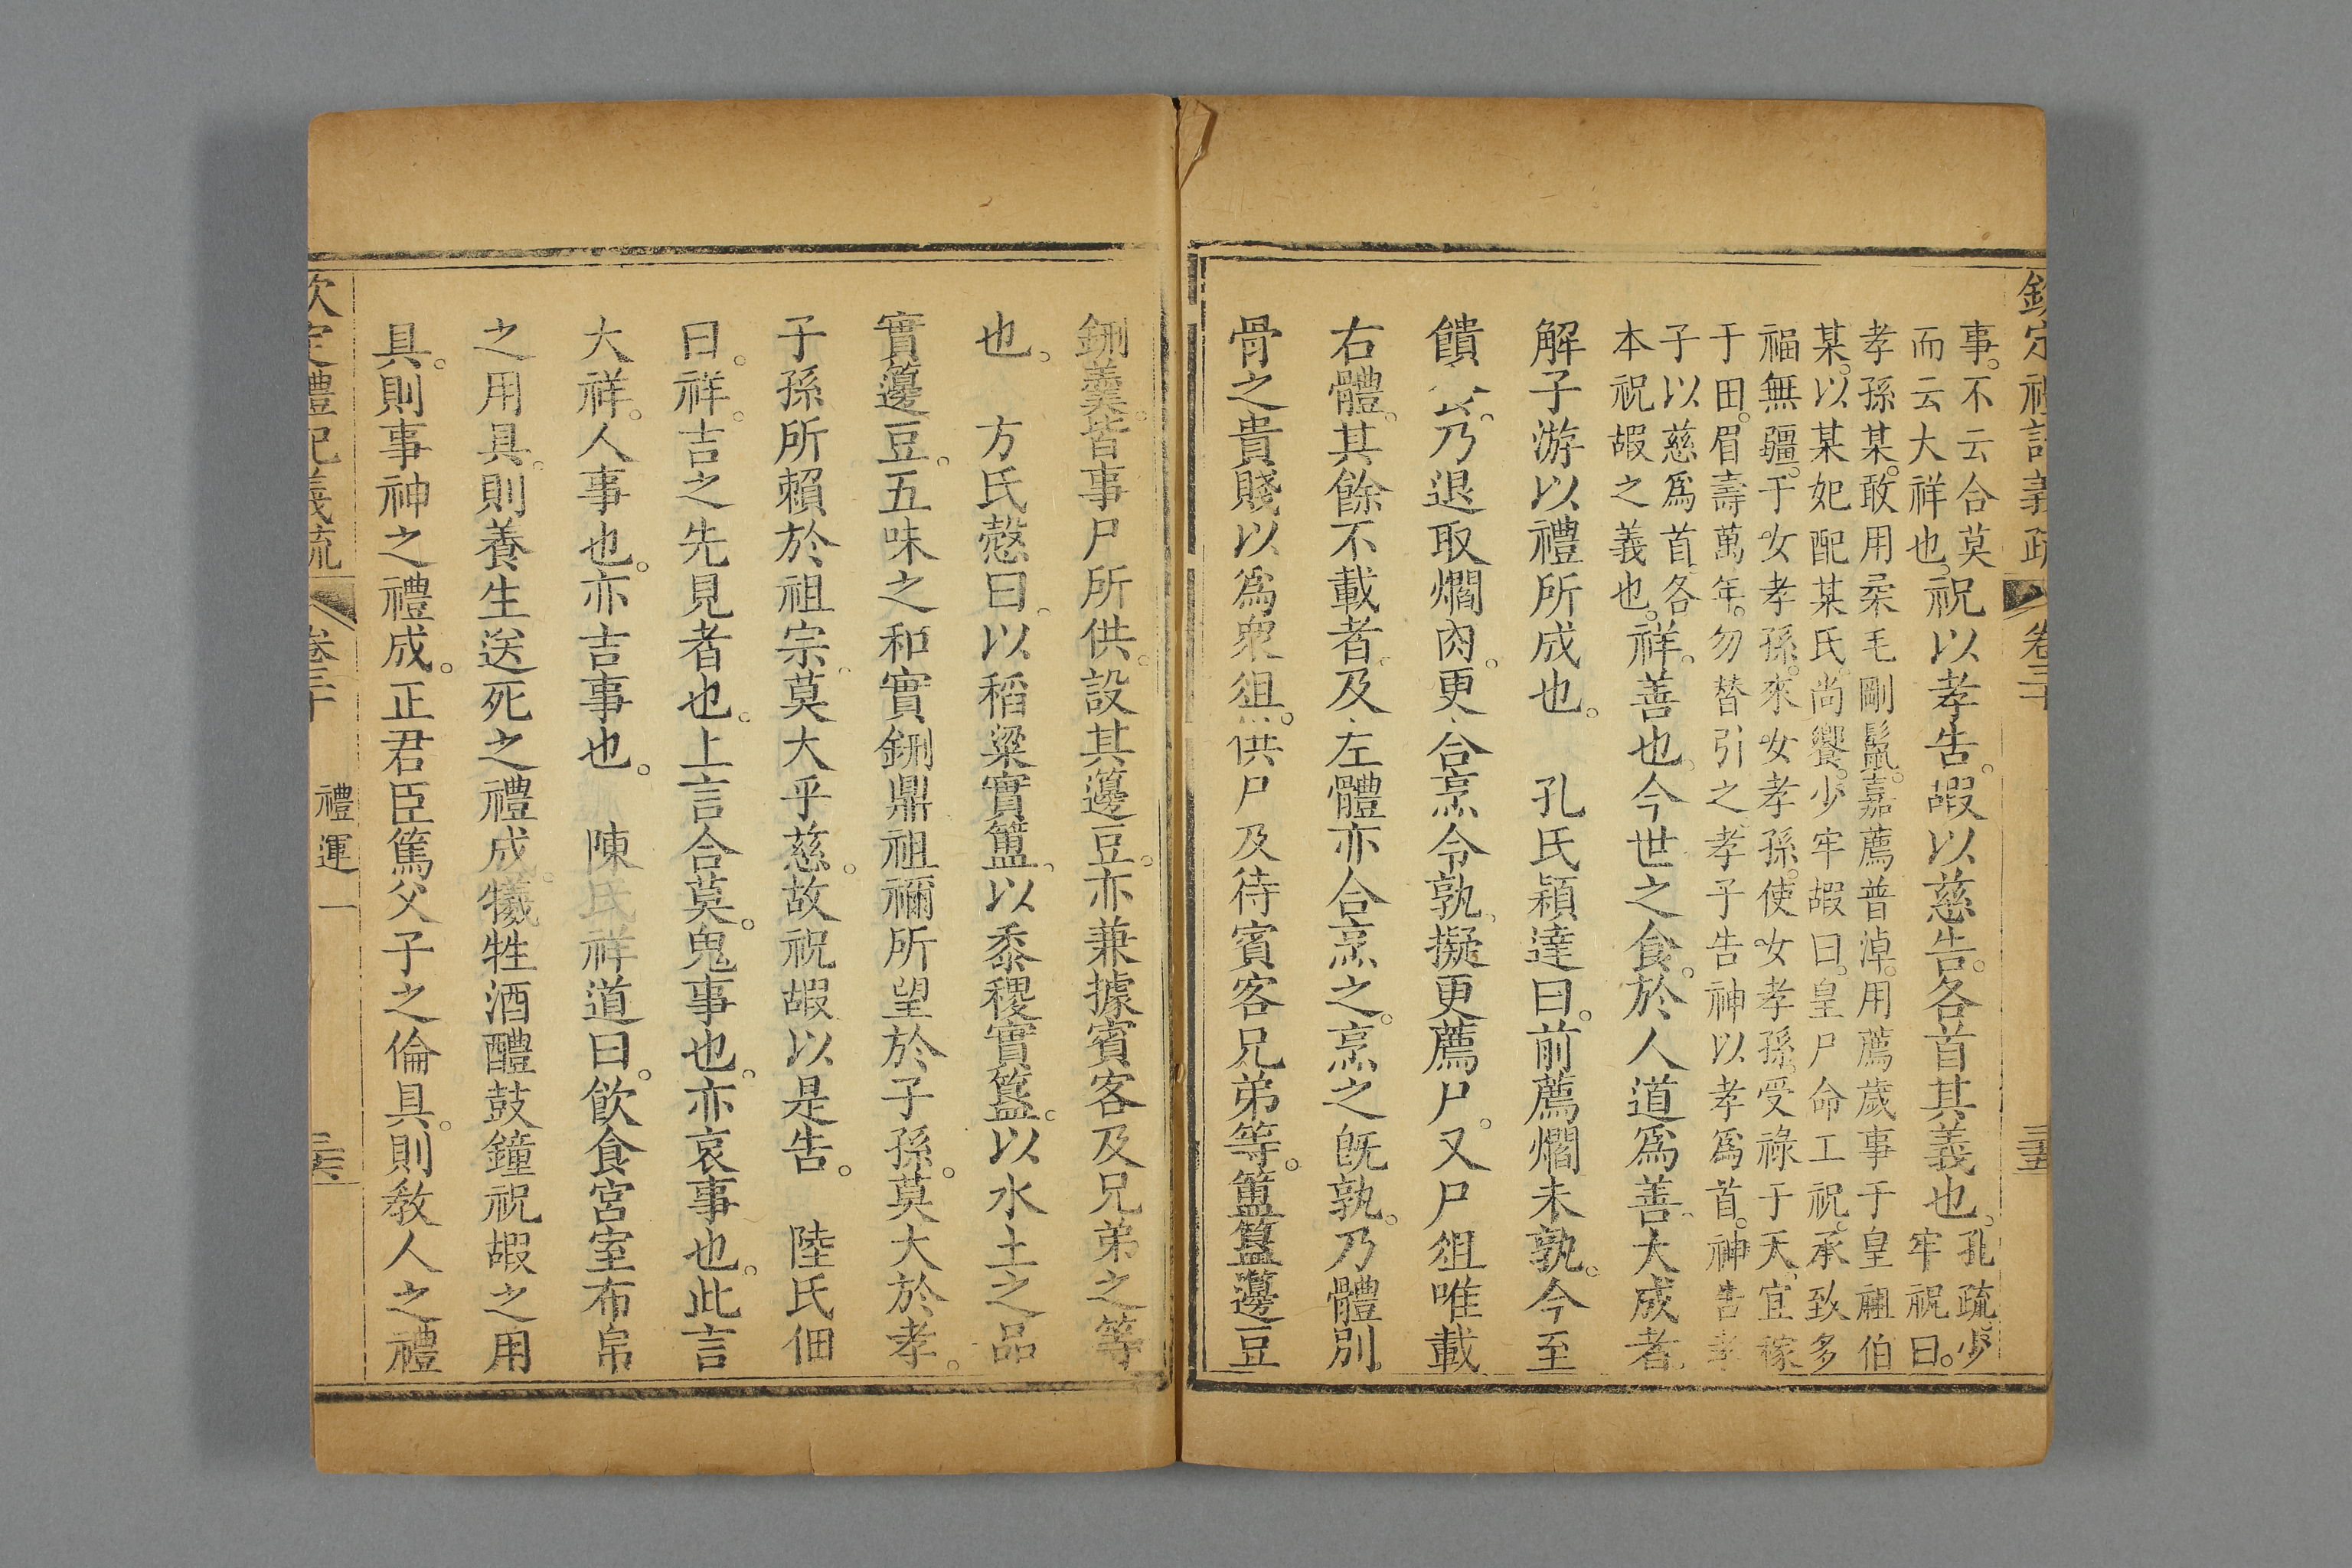 欽定禮記義疏 卷三十 三五
事。不云合莫
而云大祥也。
祝以孝告。嘏以慈告。各首其義也。
孔疏少
牢祝曰。
孝孫某。敢用柔毛剛鬣。嘉薦普淖。用薦歲事于皇祖伯
某。以某妃配某氏。尚饗。少牢嘏曰。皇尸命工祝。承致多
福無疆。于女孝孫。來女孝孫。使女孝孫。受祿于天。宜稼
于田。眉壽萬年。勿替引之。孝子告神以孝爲首。神告孝
子以慈爲首。各
本祝嘏之義也。
祥。善也。今世之食。於人道爲善。大成者。
解子游以禮所成也。 孔氏穎達曰。前薦爓未孰。今至
饋食。乃退取爓肉。更合烹令孰。擬更薦尸。又尸俎唯載
右體。其餘不載者。及左體亦合烹之。烹之旣孰。乃體別
骨之貴賤以爲衆俎。供尸及待賓客兄弟等。簠簋籩豆
鉶羹。皆事尸所供。設其籩豆。亦兼據賓客及兄弟之等
也。 方氏慤曰。以稻粱實簠。以黍稷實簋。以水土之品
實籩豆。五味之和實鉶鼎祖禰所望於子孫。莫大於孝。
子孫所賴於祖宗。莫大乎慈。故祝嘏以是告。 陸氏佃
曰。祥。吉之先見者也。上言合莫。鬼事也。亦哀事也。此言
大祥。人事也。亦吉事也。 陳氏祥道曰。飮食宮室布帛
之用具。則養生送死之禮成。犧牲酒醴鼓鐘祝嘏之用
具。則事神之禮成。正君臣篤父子之倫具。則敎人之禮
欽定禮記義疏 卷三十 禮運一 三六